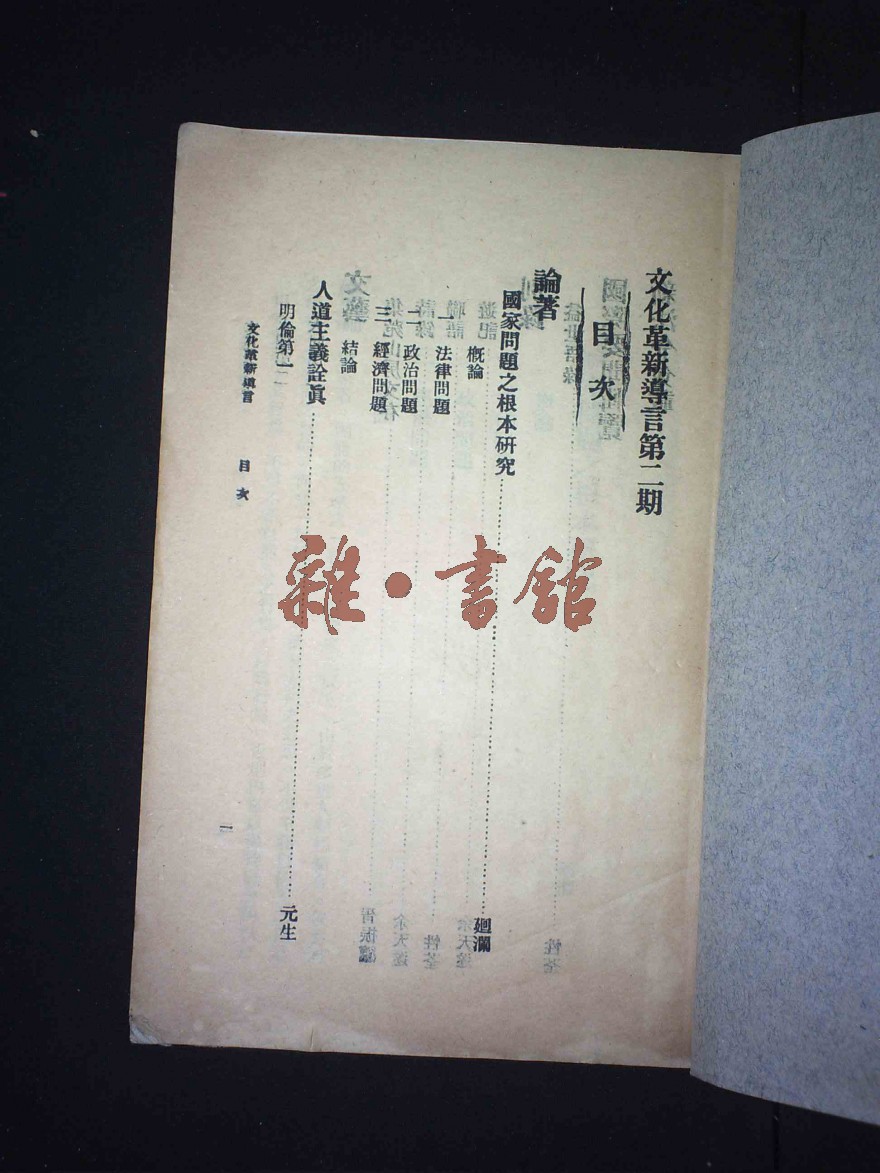 文化革新導言第二期
目次
論著
國家問題之根本研究……廻瀾
概論
一 法律問題
二 政治問題
三 經濟問題
結論
人道主義詮眞……元生
明倫第一
文化革新導言 目次
一
雜·書館